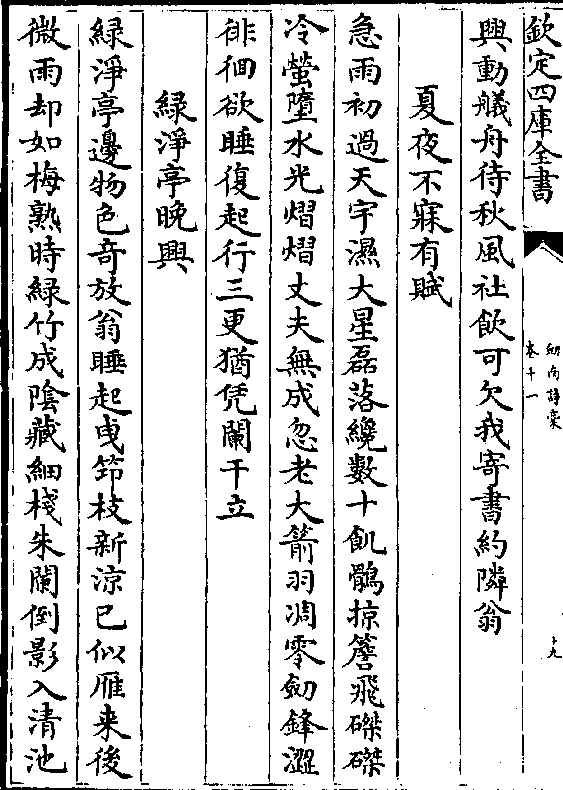 欽定四庫全書
劒南詩稾
卷十一
十九
興動艤舟待秋風社飲可欠我寄書約隣翁
夏夜不寐有賦
急雨初過天宇濕大星磊落纔數十飢鶻掠簷飛磔磔
冷螢墮水光熠熠丈夫無成忽老大箭羽凋零劒鋒澀
徘徊欲睡復起行三更猶凭闌干立
緑淨亭晚興
緑淨亭邊物色竒放翁睡起曵笻枝新涼已似雁来後
微雨却如梅熟時緑竹成陰藏細棧朱闌倒影入清池